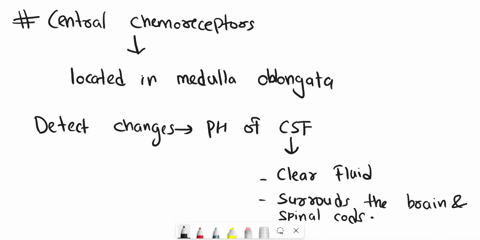 # Central chemoreceptors
↓
located in medulla oblongata
Detect changes → PH of CSF
↓
- Clear Fluid
- Surrouds the brain &
spinal cods.